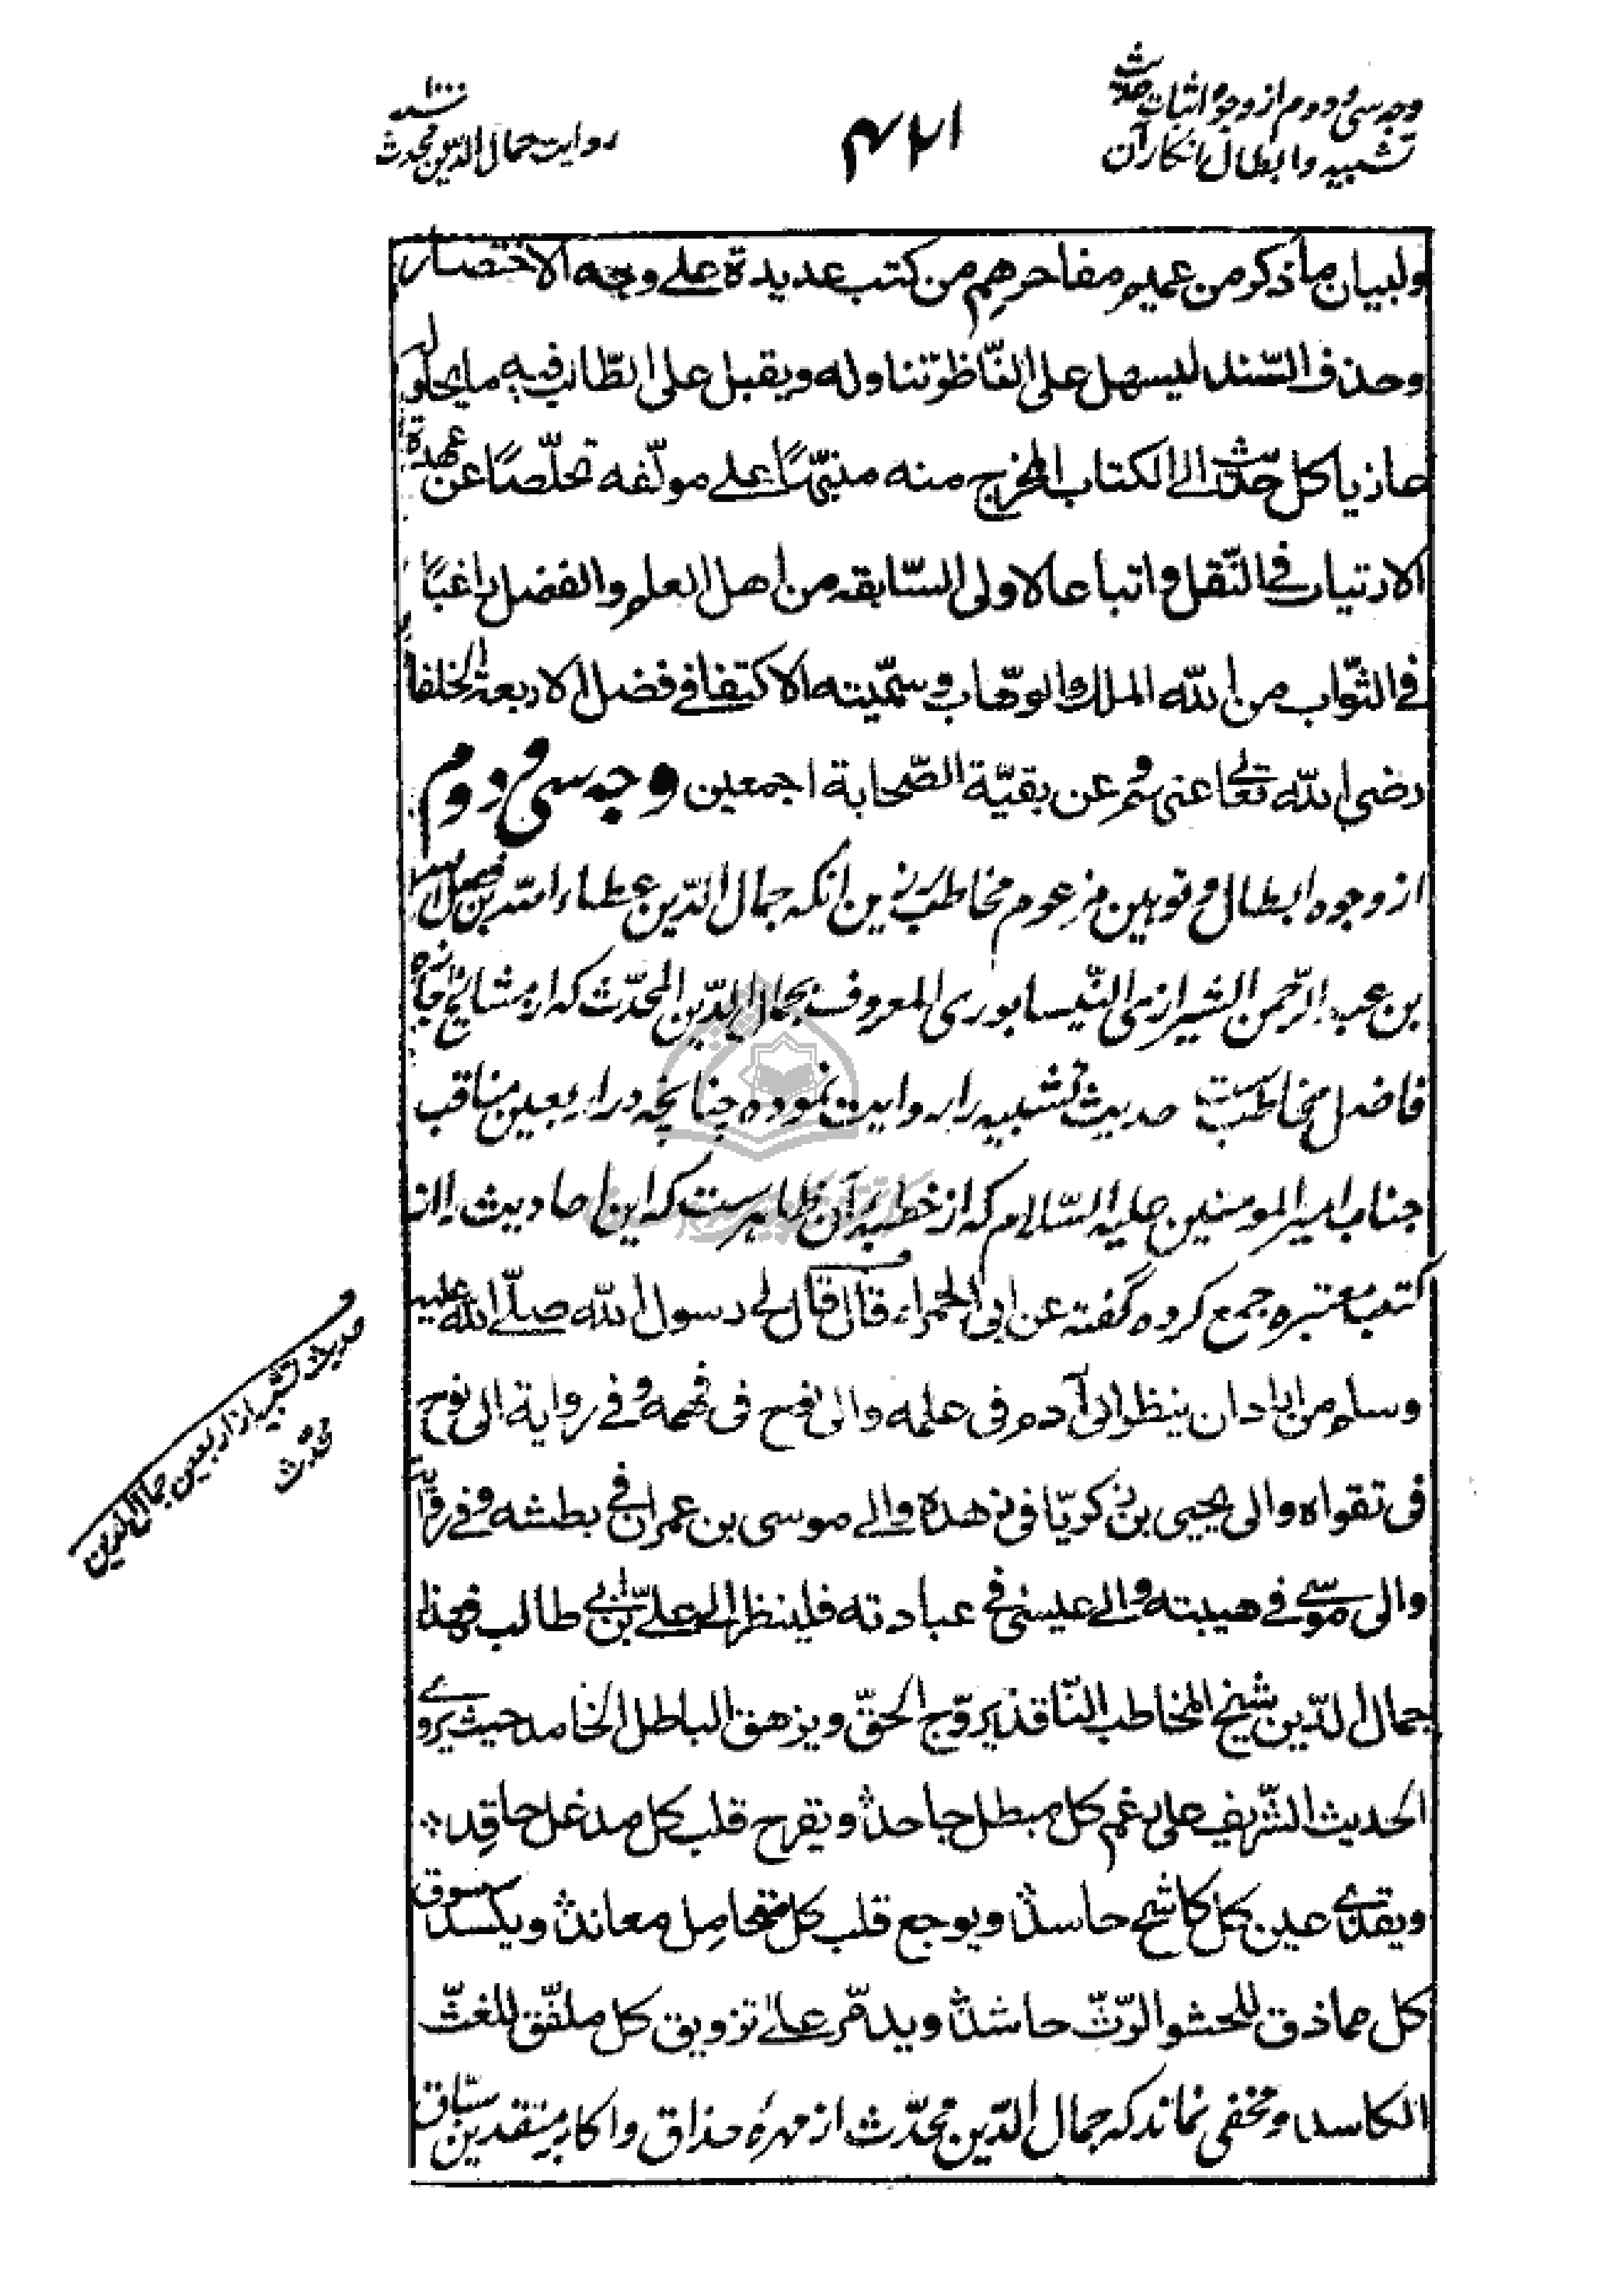 وجه سی و دوم از وجوه اثبات حدیث
تشبیه و ابطال انکار آن
۴۲۱
سند ۱۰۰۰
روایت جمال الدین محدث
ولبیان ما ذکر من عمیم مفاخرهم من کتب عدیدة علی وجه الاختصار
وحذف السّند لیسهل علی النّاظر تناوله ویقبل علی الطّالب فیه ما یحاوله
حاذیا کل حدیث الی الکتاب المخرج منه منبّهًا علی مولّفه تخلّصًا عن عهدة
الارتیاب فی النّقل واتباعا لاولی السّابقه من اهل العلم والفضل راغبًا
فی الثّواب من الله الملک الوهّاب وسمّیته الاکتفا فی فضل الاربعة الخلفا
رضی الله تعالی عنهم وعن بقیّة الصّحابة اجمعین وجه سی و دوم
از وجوه ابطال و توهین مزعوم مخاطب رزین آنکه جمال الدّین عطاء الله بن فضل الله
بن عبد الرّحمن الشیرازی النّیسابوری المعروف بجمال الدّین المحدّث که از مشائخ اجازه
فاضل مخاطب ست حدیث تشبیه را روایت نموده چنانچه در اربعین مناقب
جناب امیر المومنین علیه السّلام که از خطبه آن ظاهرست که این احادیث را از
کتب معتبره جمع کرده گفته عن ابی الحمراء قال قال لی رسول الله صلّی الله علیه
وسلم من اراد ان ینظر الی آدم فی علمه والی نوح فی فهمه وفی روایة الی نوح
فی تقواه والی یحیی بن زکریّا فی زهده والی موسی بن عمران فی بطشه وفی روایة
والی موسی فی هیبته والی عیسی فی عبادته فلینظر الی علیّ بن ابی طالب فهذا
جمال الدّین شیخ المخاطب النّاقد یروّج الحقّ ویزهق الباطل الخامد حیث یروی
الحدیث الشّریف علی رغم کل مبطل جاحد ویقرح قلب کل مدغل حاقد
ویقذی عین کل کاشح حاسد ویوجع قلب کل متحامل معاند ویکسد سوق
کل مماذق للحشو الرّثّ حاشد ویدمّر علی تزویق کل ملفّق للغثّ
الکاسد ومخفی نماند که جمال الدّین محدّث از مهره حذاق و اکابر منقدین سبّاق
حدیث تشبیه از اربعین جمال الدین
محدّث